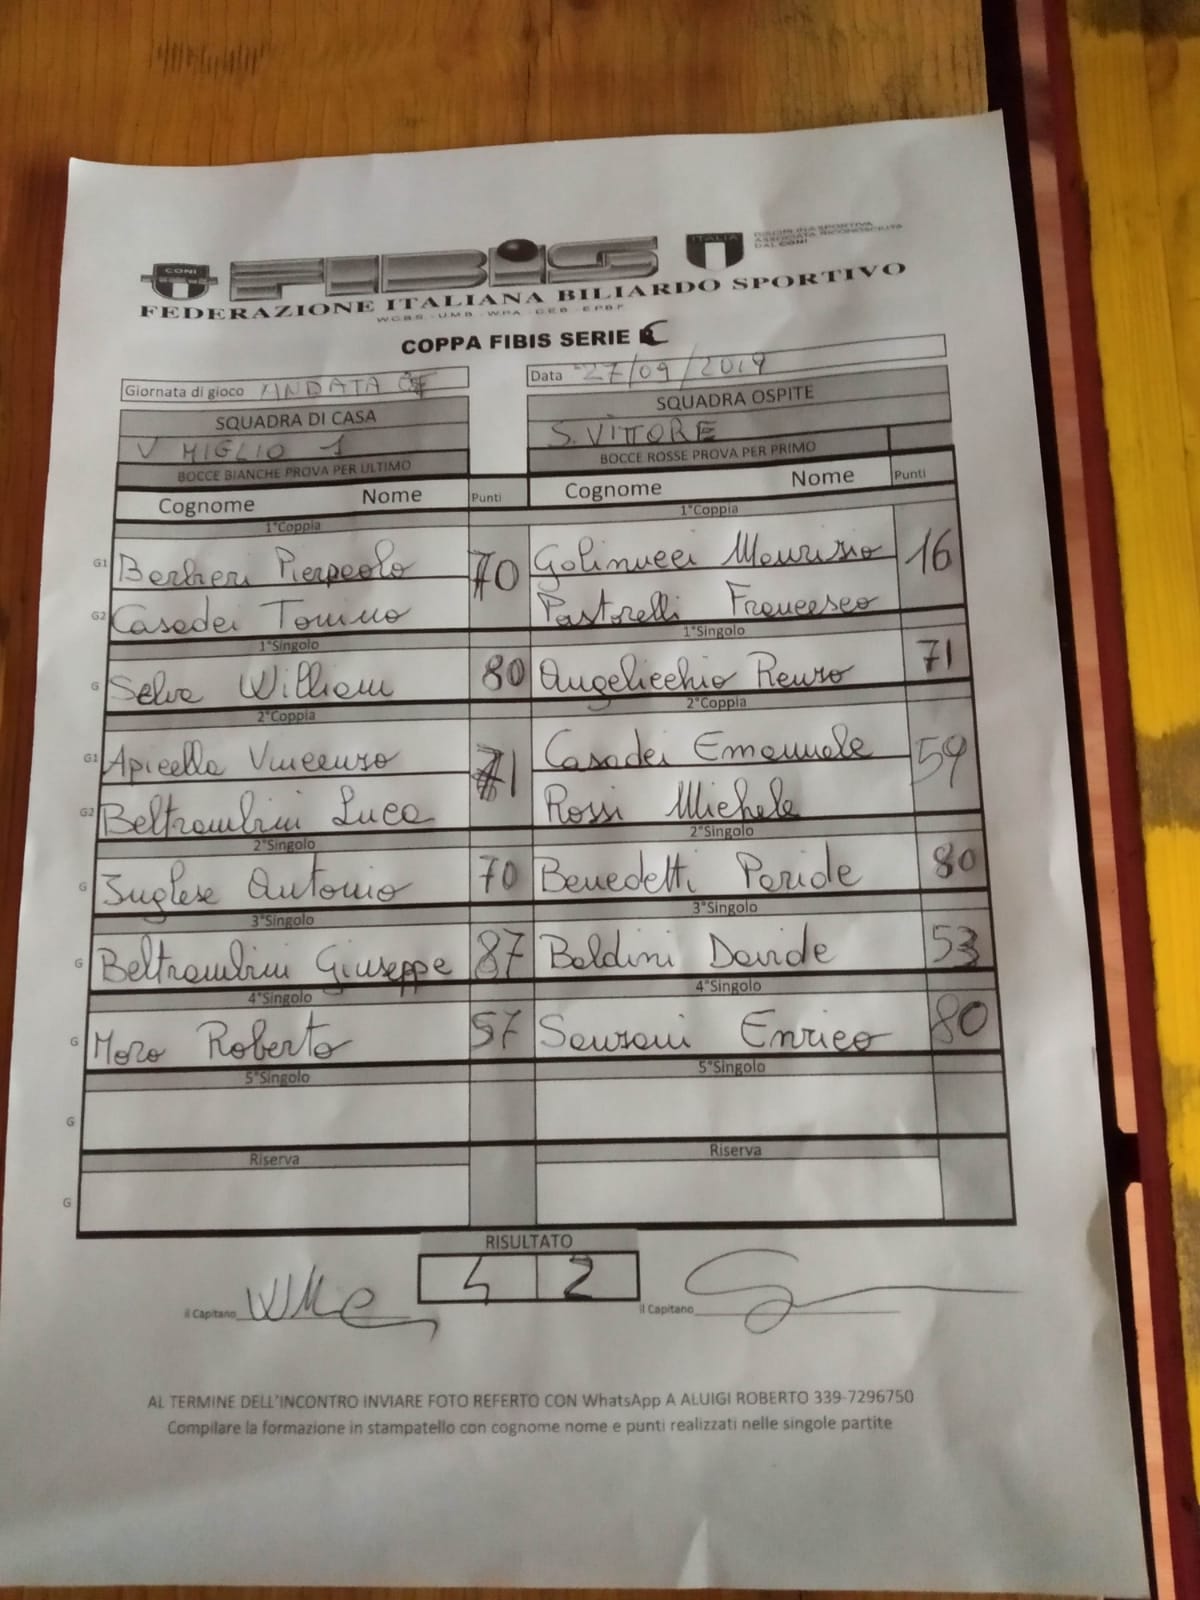 CONI
FIBiS
ITALIA
DISCIPLINA SPORTIVA
ASSOCIATA RICONOSCIUTA
DAL CONI
FEDERAZIONE ITALIANA BILIARDO SPORTIVO
W.C.B.S. - U.M.B. - W.P.A. - C.E.B. - E.P.B.F.
COPPA FIBIS SERIE C
Giornata di gioco ANDATA
Data 27/09/2019
SQUADRA DI CASA
SQUADRA OSPITE
V MIGLIO 1
S. VITTORE
BOCCE BIANCHE PROVA PER ULTIMO
BOCCE ROSSE PROVA PER PRIMO
Cognome Nome Punti Cognome Nome Punti
1°Coppia 1°Coppia
G1 Berlieri Pierpaolo 70 Golinucci Maurizio 16
G2 Casadei Tonino Pastorelli Francesco
1°Singolo 1°Singolo
G Selva William 80 Angelicchio Renzo 71
2°Coppia 2°Coppia
G1 Apicella Vincenzo 71 Casadei Emanuele 59
G2 Beltrambini Luca Rossi Michele
2°Singolo 2°Singolo
G Inglese Antonio 70 Benedetti Paride 80
3°Singolo 3°Singolo
G Beltrambini Giuseppe 87 Baldini Davide 53
4°Singolo 4°Singolo
G Moro Roberto 57 Sanzani Enrico 80
5°Singolo 5°Singolo
G
Riserva Riserva
G
RISULTATO
4 2
il Capitano
il Capitano
AL TERMINE DELL'INCONTRO INVIARE FOTO REFERTO CON WhatsApp A ALUIGI ROBERTO 339-7296750
Compilare la formazione in stampatello con cognome nome e punti realizzati nelle singole partite